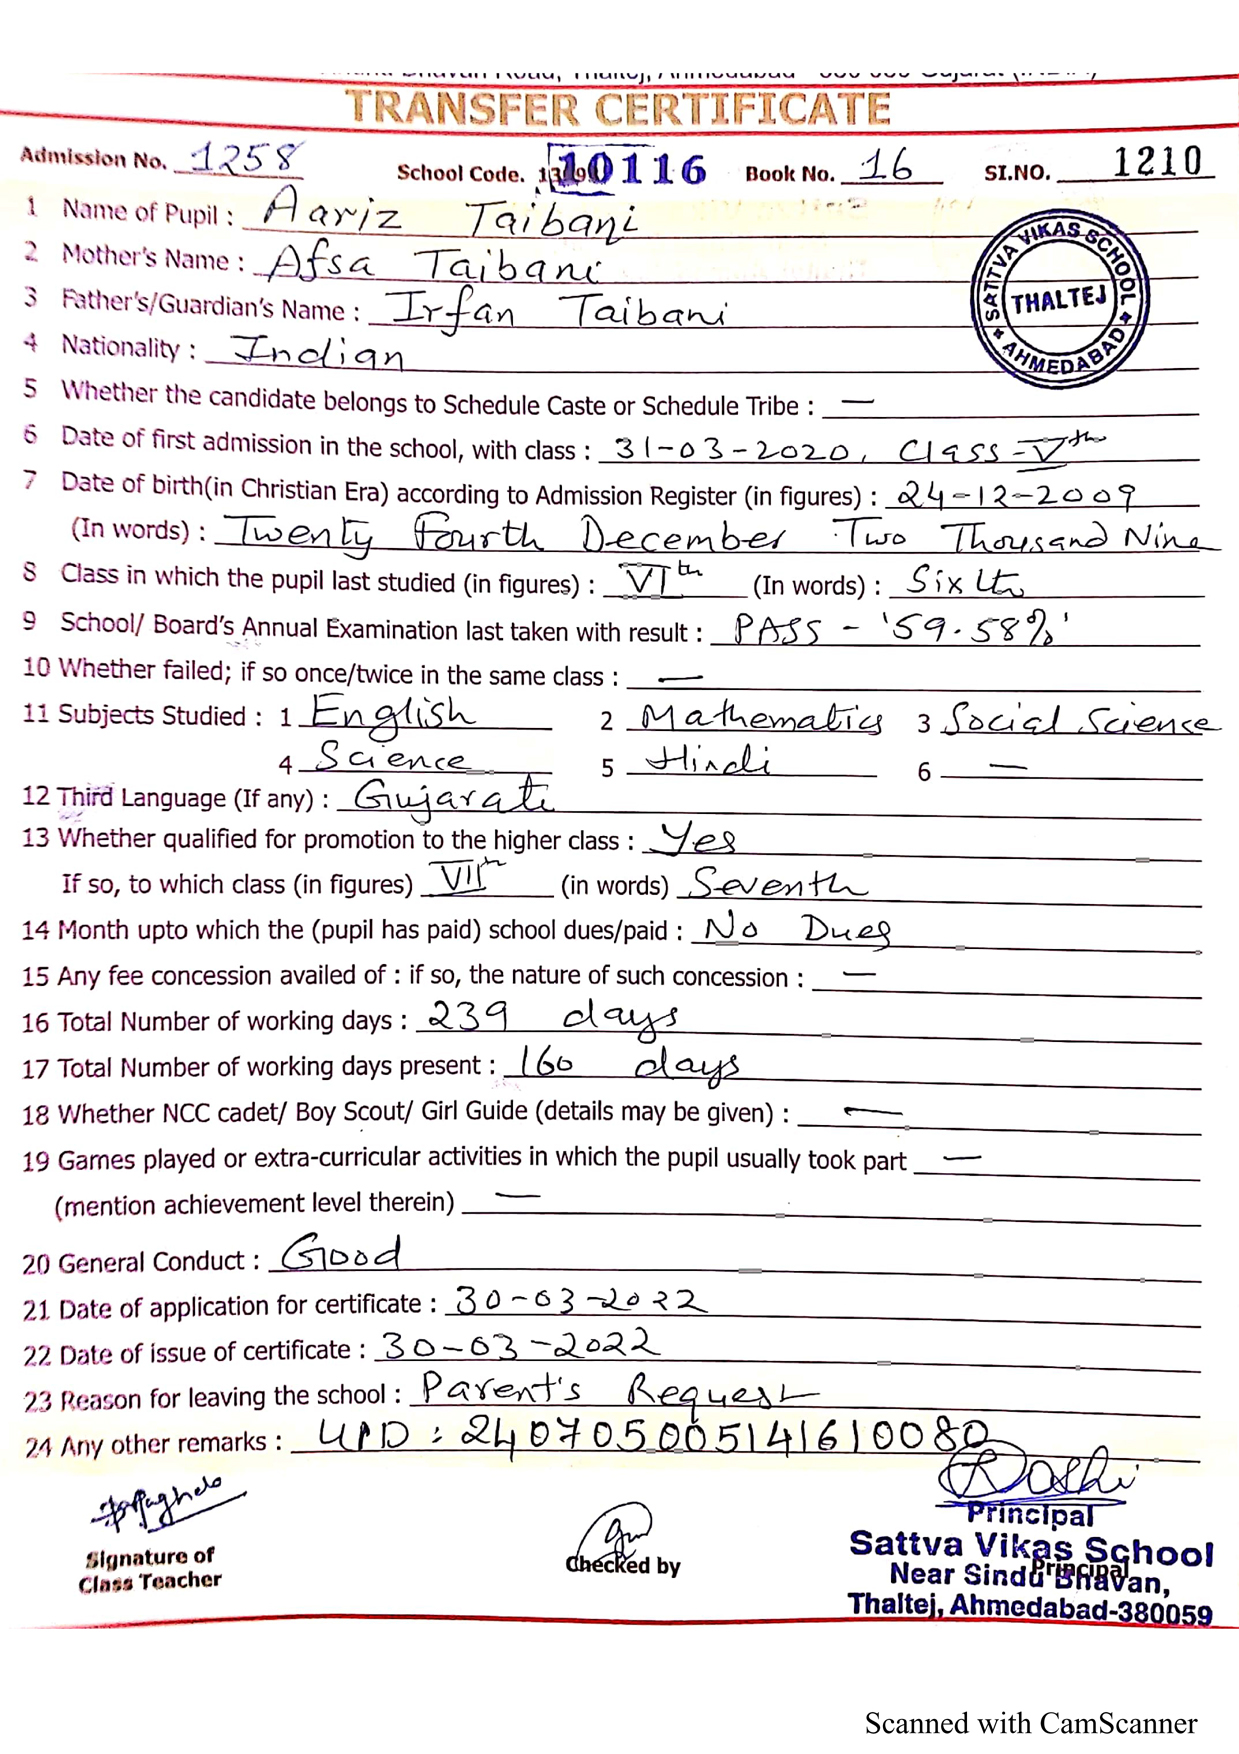 TRANSFER CERTIFICATE
Admission No. 1258 School Code. 10116 Book No. 16 SI.NO. 1210
1 Name of Pupil : Aariz Taibani
2 Mother's Name : Afsa Taibani
3 Father's/Guardian's Name : Irfan Taibani
SATTVA VIKAS SCHOOL
THALTEJ
* AHMEDABAD *
4 Nationality : Indian
5 Whether the candidate belongs to Schedule Caste or Schedule Tribe : —
6 Date of first admission in the school, with class : 31-03-2020, Class-Vth
7 Date of birth(in Christian Era) according to Admission Register (in figures) : 24-12-2009
(In words) : Twenty Fourth December Two Thousand Nine
8 Class in which the pupil last studied (in figures) : VIth (In words) : Sixth
9 School/ Board's Annual Examination last taken with result : PASS - '59.58%'
10 Whether failed; if so once/twice in the same class : —
11 Subjects Studied : 1 English 2 Mathematics 3 Social Science
4 Science 5 Hindi 6 —
12 Third Language (If any) : Gujarati
13 Whether qualified for promotion to the higher class : Yes
If so, to which class (in figures) VIIth (in words) Seventh
14 Month upto which the (pupil has paid) school dues/paid : No Dues
15 Any fee concession availed of : if so, the nature of such concession : —
16 Total Number of working days : 239 days
17 Total Number of working days present : 160 days
18 Whether NCC cadet/ Boy Scout/ Girl Guide (details may be given) : —
19 Games played or extra-curricular activities in which the pupil usually took part —
(mention achievement level therein) —
20 General Conduct : Good
21 Date of application for certificate : 30-03-2022
22 Date of issue of certificate : 30-03-2022
23 Reason for leaving the school : Parent's Request
24 Any other remarks : UID : 240705005141610080
Signature of
Class Teacher
Checked by
Principal
Principal
Sattva Vikas School
Near Sindu Bhavan,
Thaltej, Ahmedabad-380059
Scanned with CamScanner